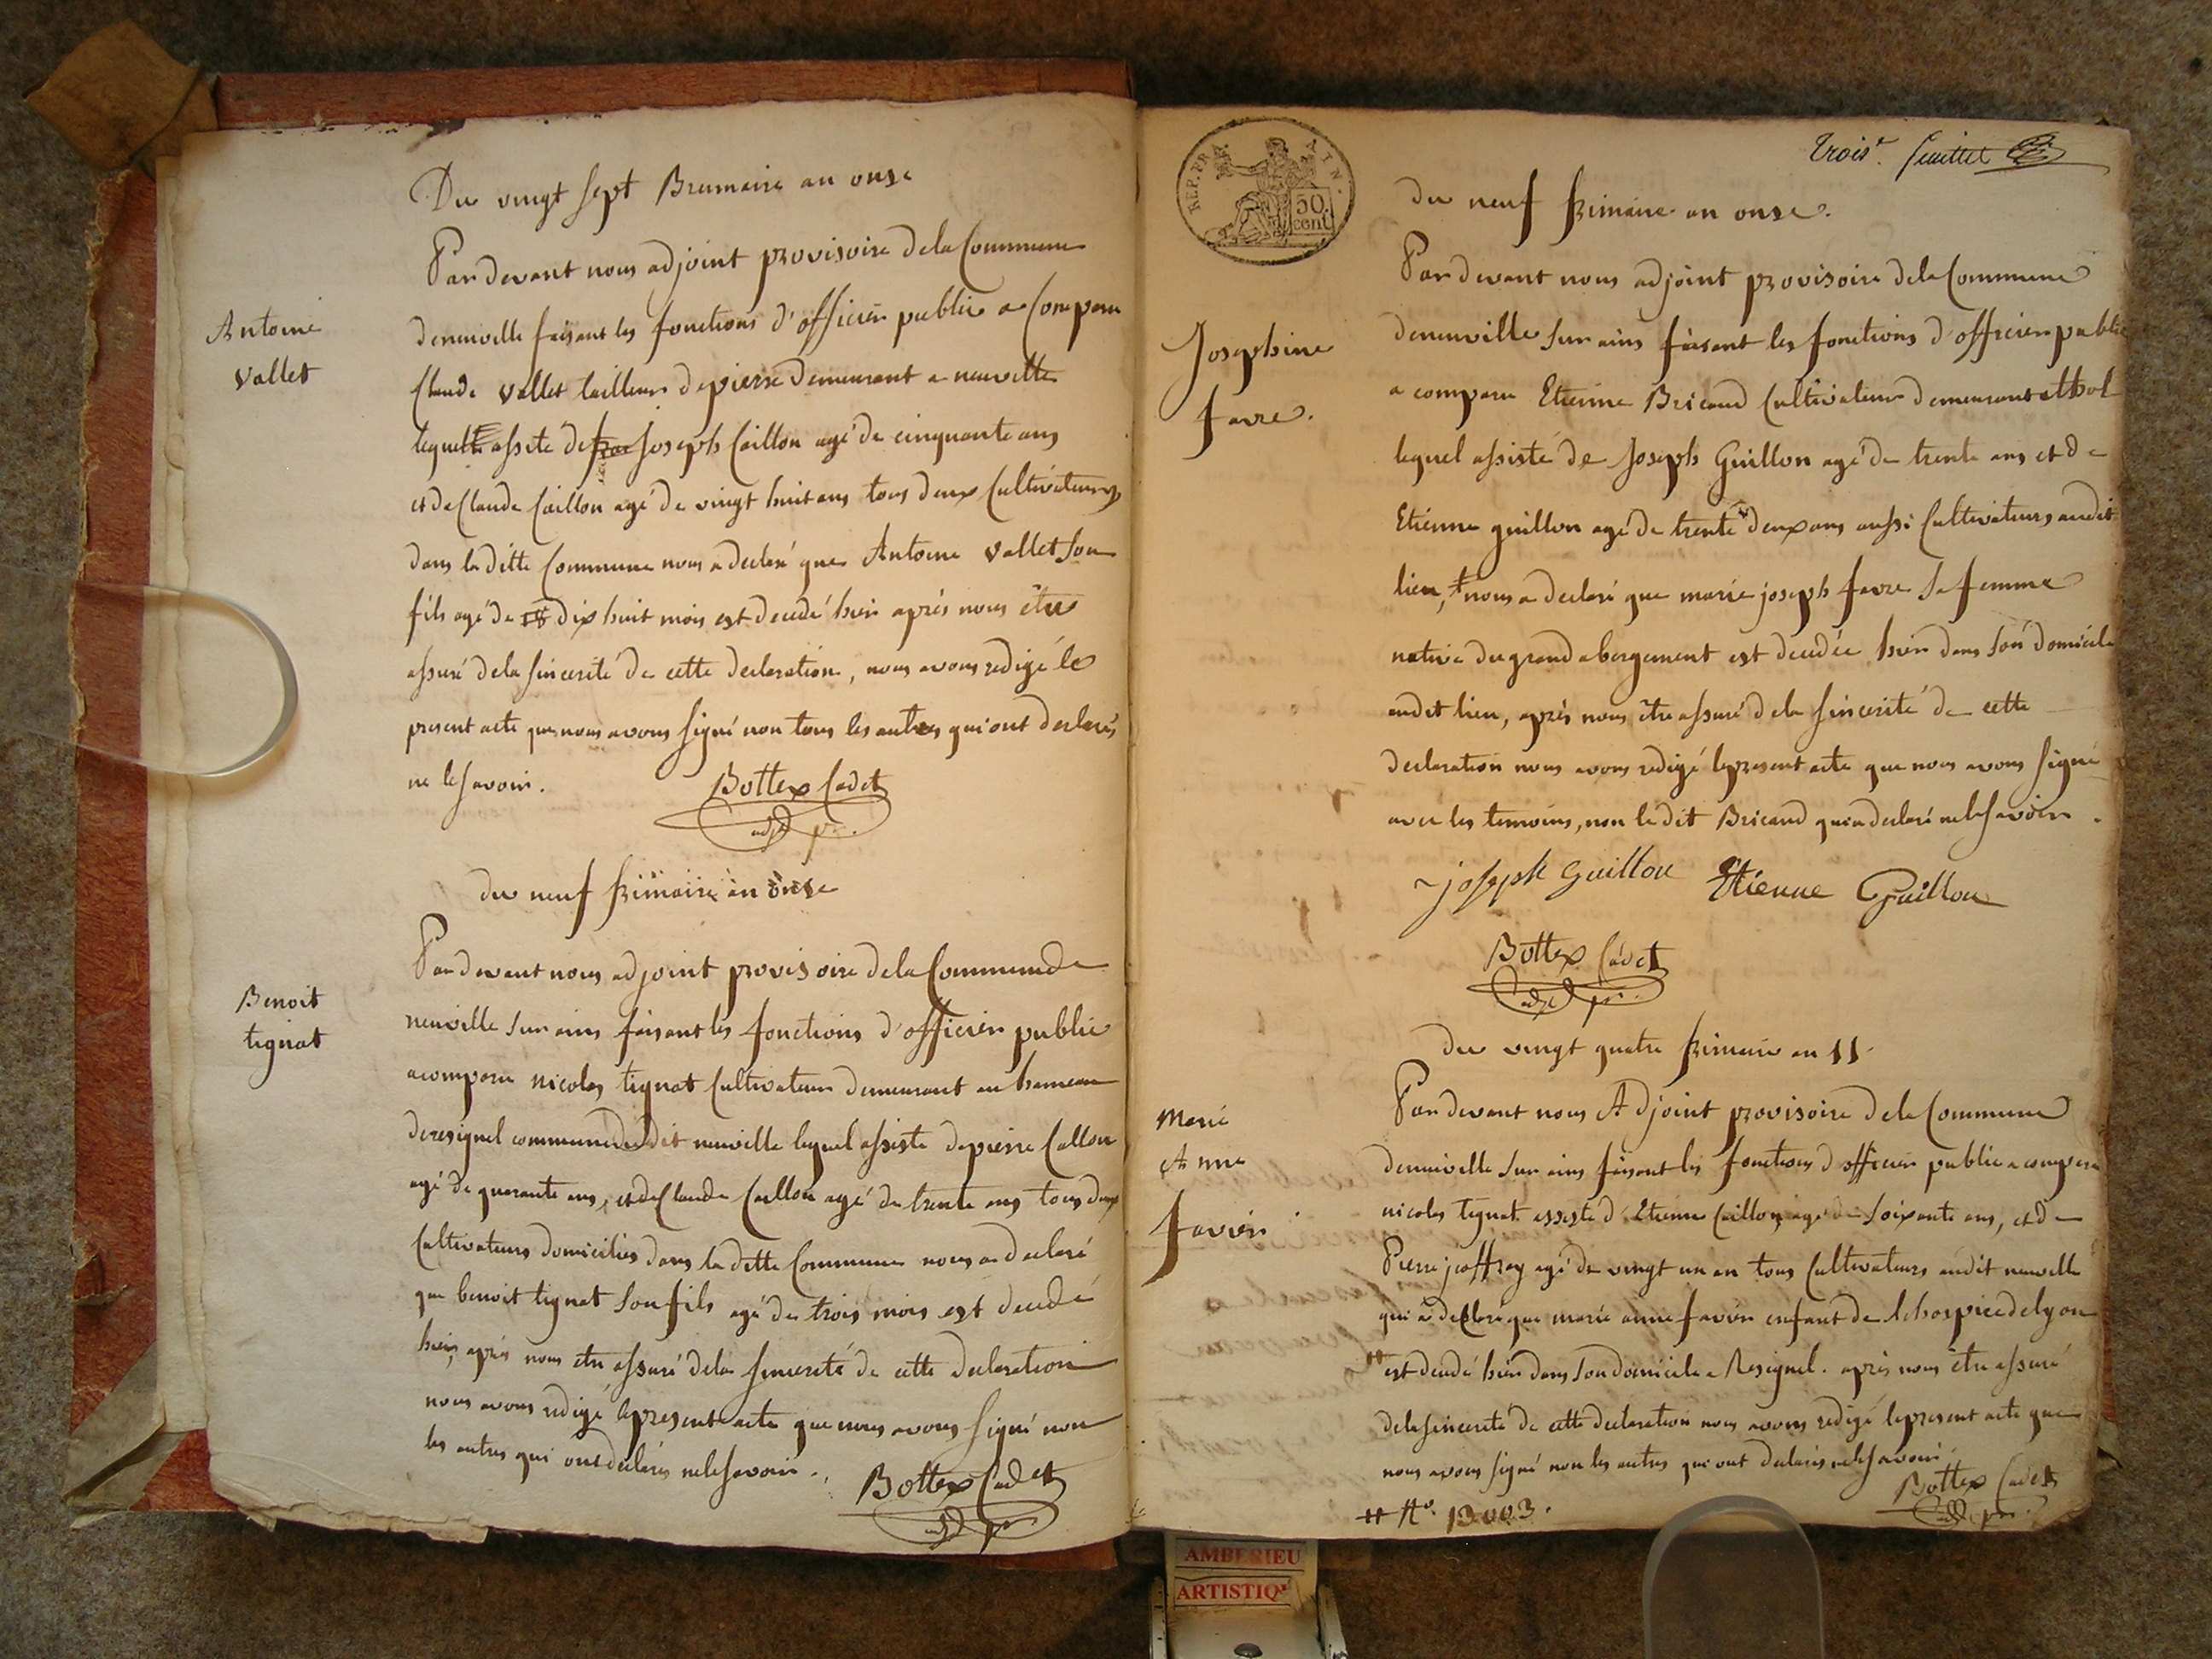 Du vingt sept Brumaire an onze
Antoine
vallet
Par devant nous adjoint provisoire dela Commune
deneuville faisant les fonctions d'officier public a Comparu
Claude vallet tailleur depierre demeurant a neuville
lequel assité de Joseph Caillon agé de cinquante ans
et deClaude Caillon agé de vingt huit ans tous deux Cultivateurs
dans la ditte Commune nous a declaré que Antoine vallet son
fils agé de dix huit mois est decedé hier après nous être
assuré dela sincerité de cette declaration, nous avons redigé le
present acte que nous avons signé non tous les autres qui ont declarés
ne le savoir.
Bottex Cadet
adj pre.
du neuf frimaire an onze
Benoit
tignat
Par devant nous adjoint provisoire dela Commune de
neuville sur ains faisant les fonctions d'officier public
acomparu nicolas tignat Cultivateur demeurant au hameau
deresignel commune dudit neuville lequel assisté depierre Callon
agé de quarante ans, et deClaude Caillon agé de trente ans tous deux
Cultivateurs domiciliés dans la ditte Commune nous a declaré
que benoit tignat son fils agé de trois mois est decedé
hier, après nous etre assuré dela sincerité de cette declaration
nous avons redigé lepresent acte que nous avons signé non
les autres qui ont declarés nelesavoir.
Bottex Cadet
adj pre
REP. FRA. ATN.
50
cent
trois.e feuillet
du neuf frimaire an onze.
Josephine
favre.
Par devant nous adjoint provisoire dela Commune
deneuville sur ains faisant les fonctions d'officier public
a comparu Etienne Bricaud Cultivateur demeurant a thol
lequel assisté de Joseph Guillon agé de trente ans et de
Etienne guillon agé de trente deux ans aussi Cultivateurs audit
lieu, nous a declaré que marie joseph favre sa femme
native du grand abergement est decedée hier dans son domicile
audit lieu, après nous être assuré dela sincerité de cette
declaration nous avons redigé lepresent acte que nous avons signé
avec les temoins, non le dit Bricaud qui a declaré nelesavoir.
joseph guillon Etienne Guillon
Bottex Cadet
adj pre.
du vingt quatre frimaire an 11.
Marie
Anne
favier
Par devant nous Adjoint provisoire dela Commune
deneuville sur ains faisant les fonctions d'officier public a comparu
nicolas tignat assisté d'Etienne Caillon, agé de soixante ans, et de
Pierre jeoffray agé de vingt un an tous Cultivateurs audit neuville
qui a declaré que marie anne favier enfant de lehospice delyon
# est decedé hier dans son domicile a Resignel. après nous être assuré
dela sincerité de cette declaration nous avons redigé lepresent acte que
nous avons signé non les autres qui ont declarés nelesavoir
Bottex Cadet
adj pre.
# No. 13003.
AMBERIEU
ARTISTIQ